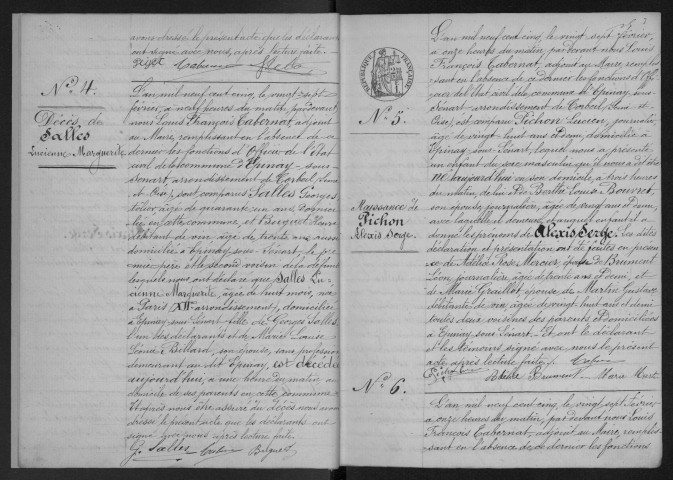 avons dressé le présent acte que les déclarants
ont signé avec nous, après lecture faite.
N° 4.
Décès de
Salles
Lucienne Marguerite
L'an mil neuf cent cinq, le vingt-sept
février, à neuf heures du matin, par devant
nous Louis François Cabernat, adjoint
au Maire, remplissant en l'absence de ce
dernier les fonctions d'Officier de l'État
civil de la commune d'Epinay-sous-
Sénart, arrondissement de Corbeil, (Seine
et Oise), sont comparus Salles Georges
âgé de quarante un ans, domici
lié en cette commune, et Buguet
débitant de vin, âgé de trente ans
domicilié à Epinay sous Sénart, le pre
mier père et le second voisin de la défunte
lesquels nous ont déclaré que Salles Lu
cienne Marguerite, âgée de huit mois, née
à Paris arrondissement, domiciliée
à Epinay sous Sénart fille de Georges Salles
l'un des déclarants et de Marie Laure
Bellard, son épouse, sans profession
demeurant au dit Epinay, est décédée
aujourd'hui, à une heure du matin, au
domicile de ses parents en cette commune
Et après nous être assuré du décès nous avons
dressé le présent acte que les déclarants ont
signé avec nous après lecture faite.
G. Salles
RÉPUBLIQUE FRANÇAISE
N° 5.
Naissance de
Pichon
Alexis Serge
L'an mil neuf cent cinq, le vingt sept février,
à onze heures du matin, par devant nous Louis
François Cabernat, adjoint au Maire, remplis
sant en l'absence de ce dernier les fonctions d'Offi
cier de l'état civil de la commune d'Epinay sous
Sénart arrondissement de Corbeil (Seine et
Oise), est comparu Pichon Lucien, journalier
âgé de vingt huit ans, domicilié à
Epinay sous Sénart, lequel nous a présenté
un enfant du sexe masculin qu'il nous a dit être
né aujourd'hui en son domicile, à trois heures
du matin, de lui et de Berthe Louise Bouvret
son épouse, journalière, âgée de vingt ans et demi,
avec laquelle il demeure et auquel enfant il a
donné les prénoms de Alexis Serge. Les dites
déclaration et présentation ont été faites en présen
ce de Rose Mercier, épouse de Brument
Léon, journalière, âgée de trente ans et demi, et
de Marie Graillot épouse de Martin Gustave
débitante de vin, âgée de vingt huit ans et demi
toutes deux voisines des parents et domiciliées
à Epinay sous Sénart. Et ont le déclarant
et les témoins signé avec nous le présent
acte après lecture faite.
N° 6.
L'an mil neuf cent cinq, le vingt sept février
à onze heures du matin, par devant nous Louis
François Cabernat, adjoint au Maire, remplis
sant en l'absence de ce dernier les fonctions